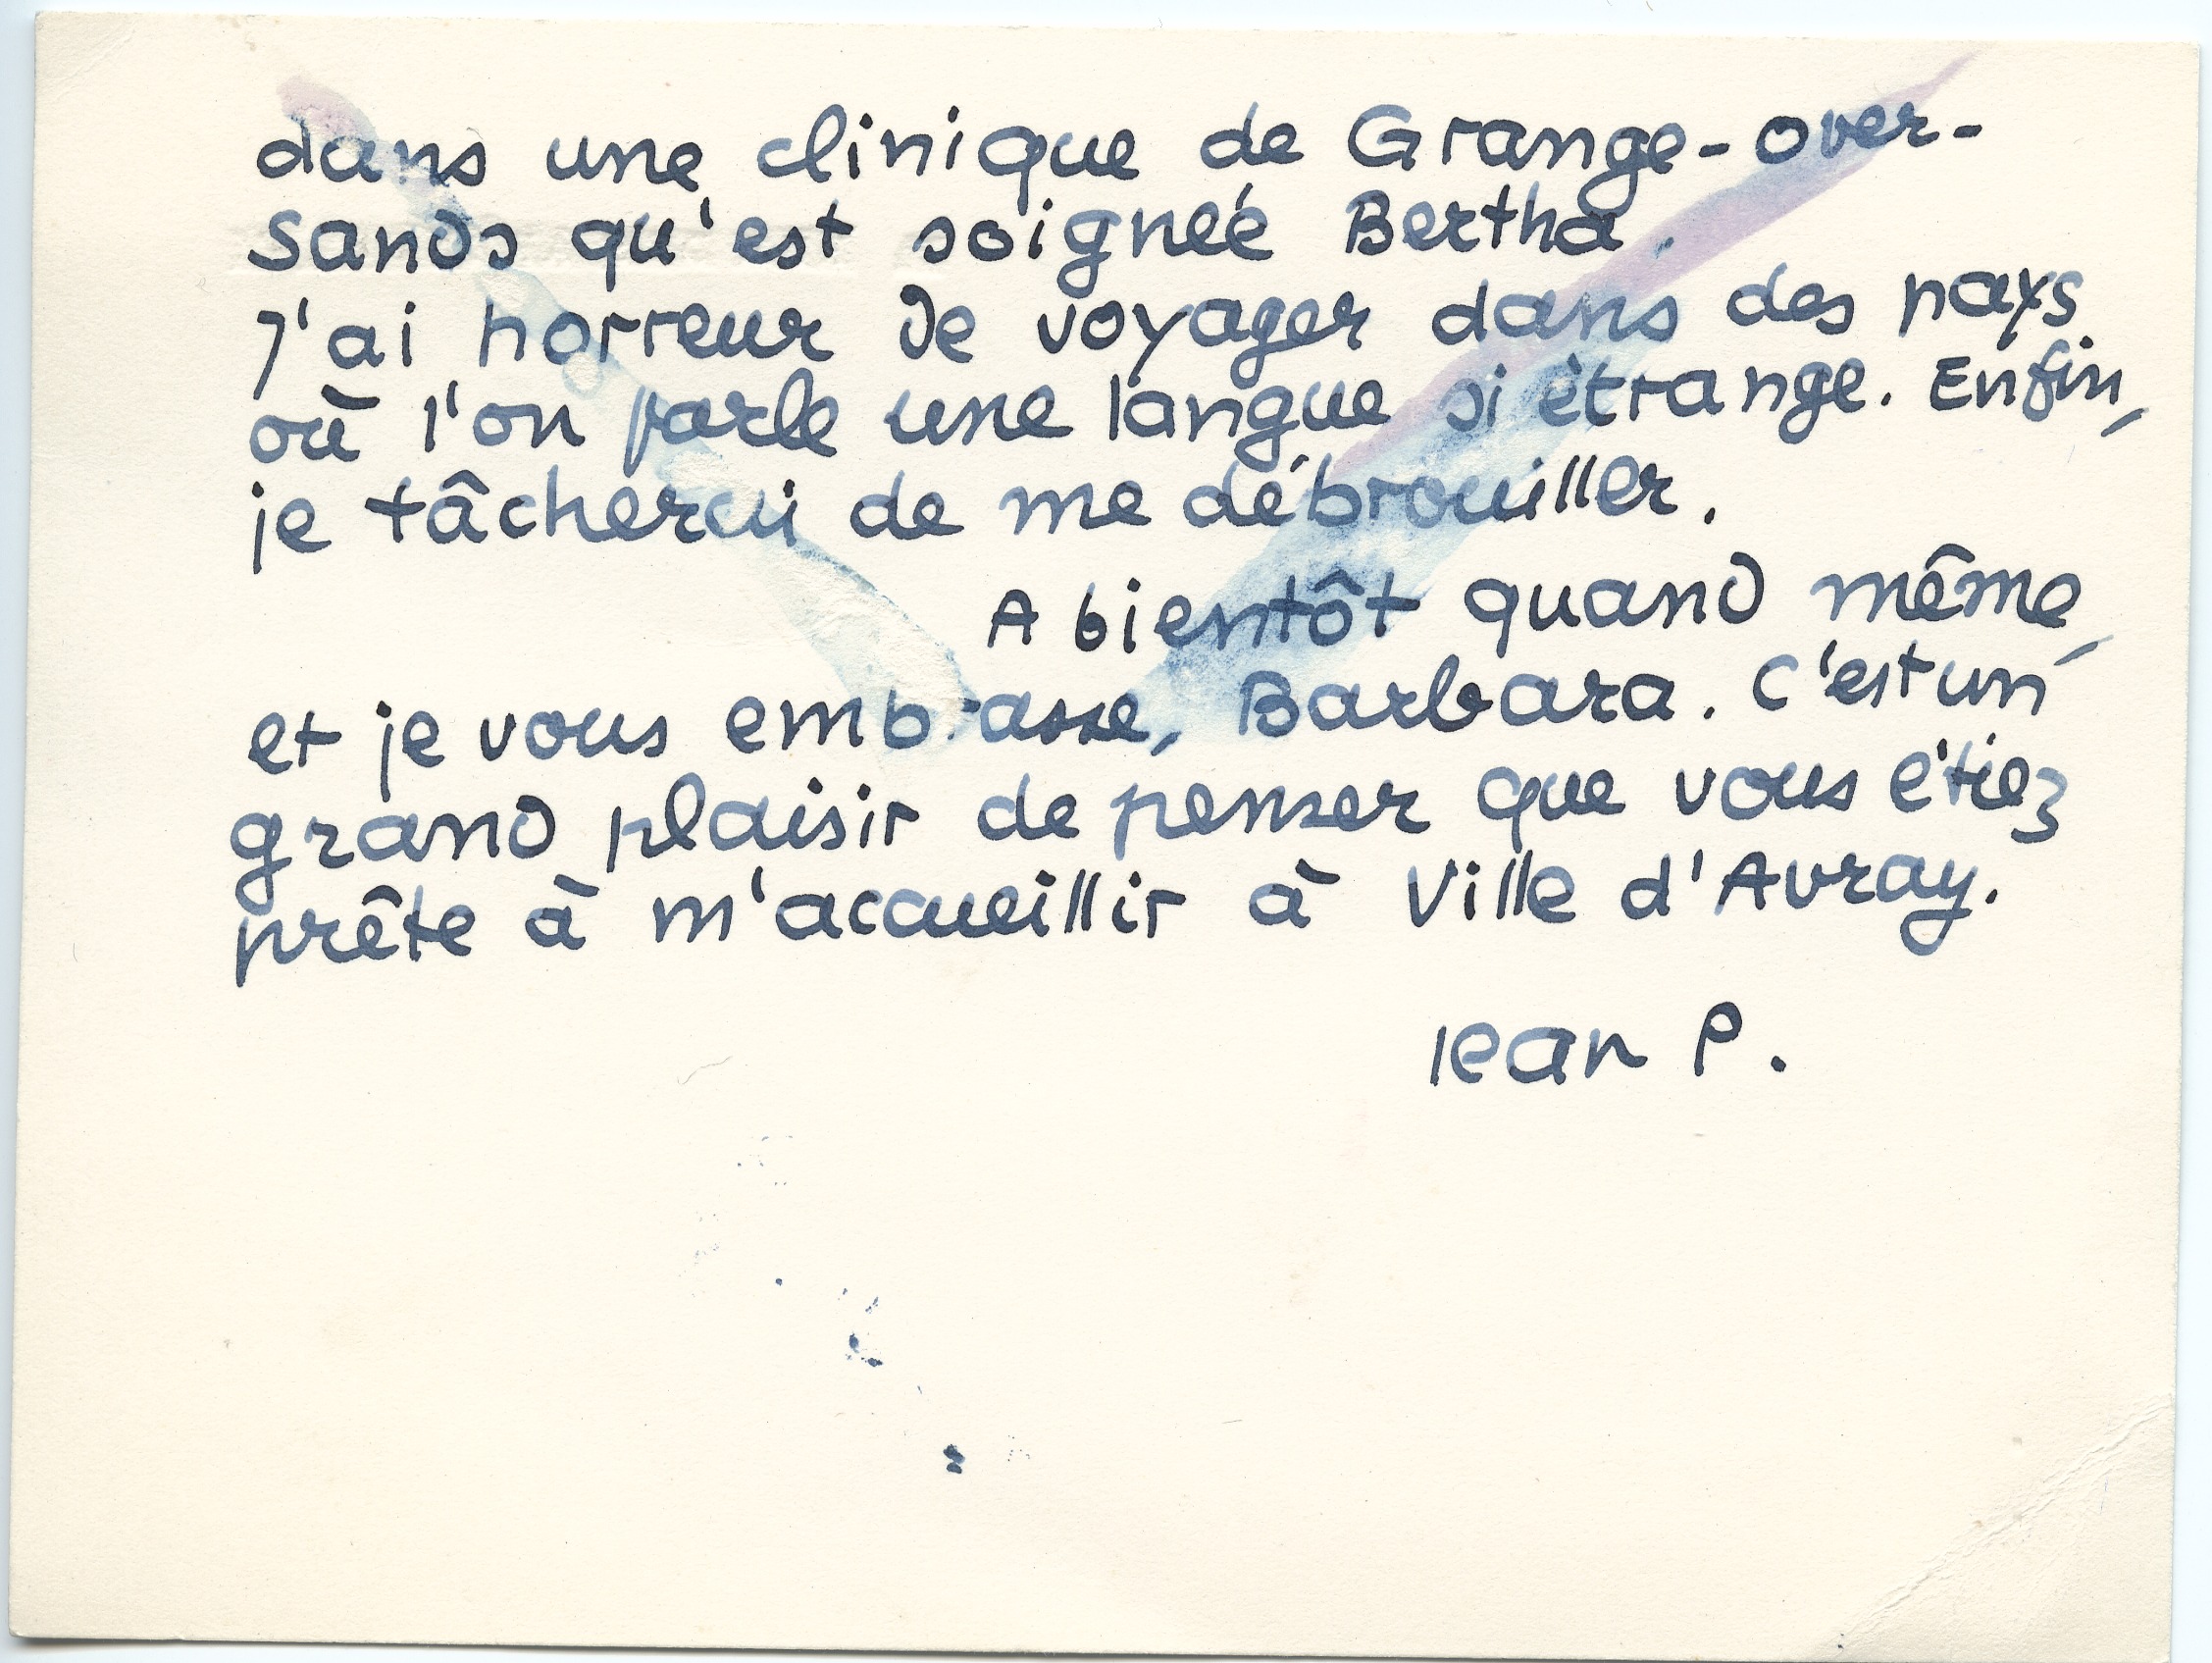 dans une clinique de Grange-over-
Sands qu'est soignée Bertha.
J'ai horreur de voyager dans des pays
où l'on parle une langue si étrange. Enfin,
je tâcherai de me débrouiller.
A bientôt quand même,
et je vous embrasse, Barbara. C'est un
grand plaisir de penser que vous étiez
prête à m'accueillir à Ville d'Avray.
Jean P.